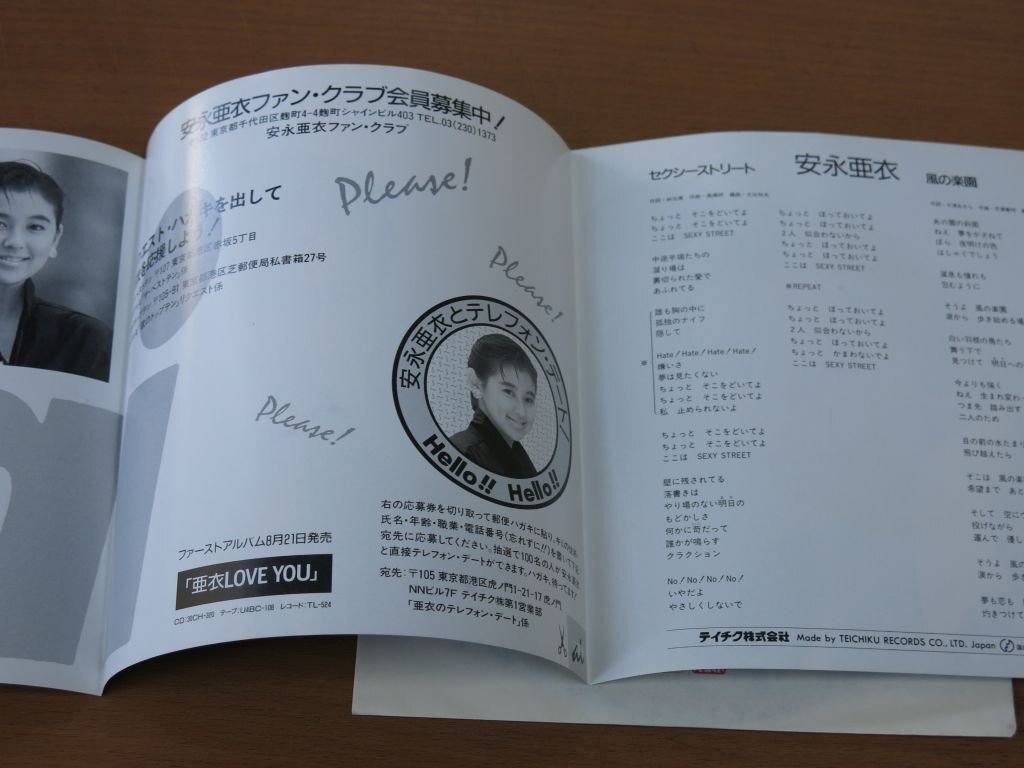 安永亜衣ファン・クラブ会員募集中！
東京都千代田区麹町4-4麹町シャインビル403 TEL.03(230)1373
安永亜衣ファン・クラブ
Please!
エスト・ハガキを出して
を応援しよう！
〒107 東京都港区赤坂5丁目
〒105-91 東京都港区芝郵便局私書箱27号
Please!
Please!
安永亜衣とテレフォン・デート！
Hello!! Hello!!
ファーストアルバム8月21日発売
「亜衣LOVE YOU」
CD:30CH-320 テープ:U4BC-108 レコード:TL-524
右の応募券を切り取って郵便ハガキに貼り、キミの住所・
氏名・年齢・職業・電話番号(忘れずに!!)を書いて下記
宛先に応募してください。抽選で100名の人が安永亜衣
と直接テレフォン・デートができます。ハガキ、待ってます！
宛先：〒105 東京都港区虎ノ門1-21-17 虎ノ門
NNビル7F テイチク㈱第1営業部
「亜衣のテレフォン・デート」係
ai
セクシーストリート
安永亜衣
風の楽園
ちょっと そこをどいてよ
ちょっと そこをどいてよ
ここは SEXY STREET
中途半端たちの
溜り場は
裏切られた愛で
あふれてる
誰も胸の中に
孤独のナイフ
隠して
※
Hate! Hate! Hate! Hate!
嫌いさ
夢は見たくない
ちょっと そこをどいてよ
ちょっと そこをどいてよ
私 止められないよ
ちょっと そこをどいてよ
ちょっと そこをどいてよ
ここは SEXY STREET
壁に残されてる
落書きは
やり場のない明日の
もどかしさ
何かに苛だって
誰かが鳴らす
クラクション
No! No! No! No!
いやだよ
やさしくしないで
ちょっと ほっておいてよ
ちょっと ほっておいてよ
2人 似合わないから
ちょっと ほっておいてよ
ちょっと ほっておいてよ
ここは SEXY STREET
※REPEAT
ちょっと ほっておいてよ
ちょっと ほっておいてよ
2人 似合わないから
ちょっと ほっておいてよ
ちょっと かまわないでよ
ここは SEXY STREET
あの雲の斜面
ねえ 夢をかさねて
ほら 夜明けの色
はしゃぐでしょう
温息も憧れも
包むように
そうよ 風の楽園
涙から 歩き始める
白い羽根の鳥たち
舞う下で
見つけて 明日への
今よりも強く
ねえ 生まれ変わ
つま先 踏み出す
二人のため
目の前の水たまり
飛び越えたら
そこは 風の楽
希望まで あと
そして 空に
投げながら
運んで 優し
そうよ 風の
涙から 歩き
夢も恋も
灼きつけて
テイチク株式会社 Made by TEICHIKU RECORDS CO., LTD. Japan